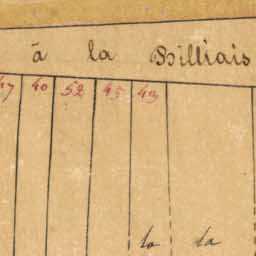 à la Billiais
47 40 52 45 49
la la